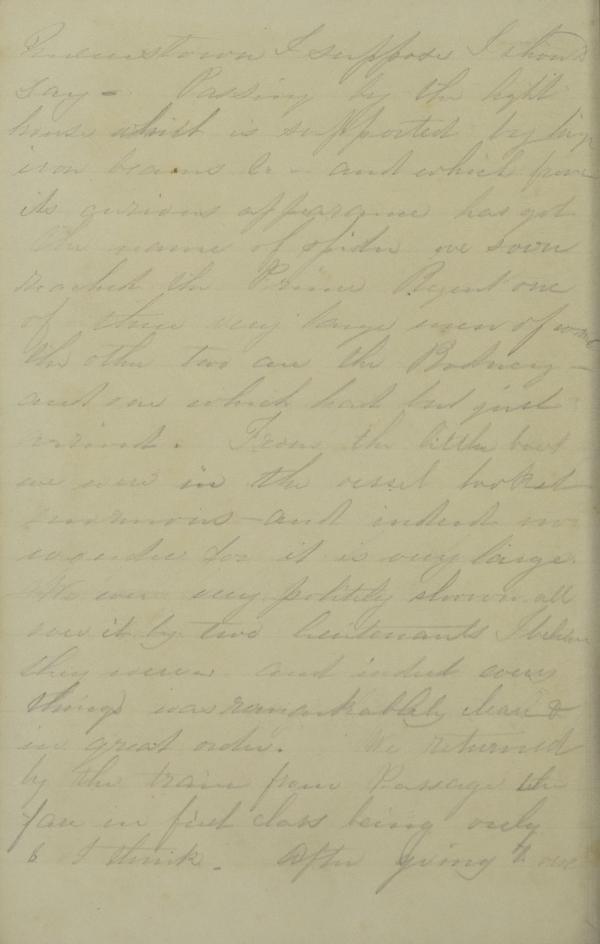 Queenstown I suppose I should
say - Passing by the light
house which is supported by
iron beams & - and which from
its curious appearance has got
the name of spider we soon
reached the Prince Regent one
of three very large men of war
the other two are the Rodney -
and one which had but just
arrived. From the little boat
we were in the vessel looked
enormous - and indeed no
wonder for it is very large.
We were very politely shown all
over it by two lieutenants I believe
they were and indeed every
thing was remarkably clean &
in great order. We returned
by the train from Passage the
fare in first class being only
6 I think. After going to our